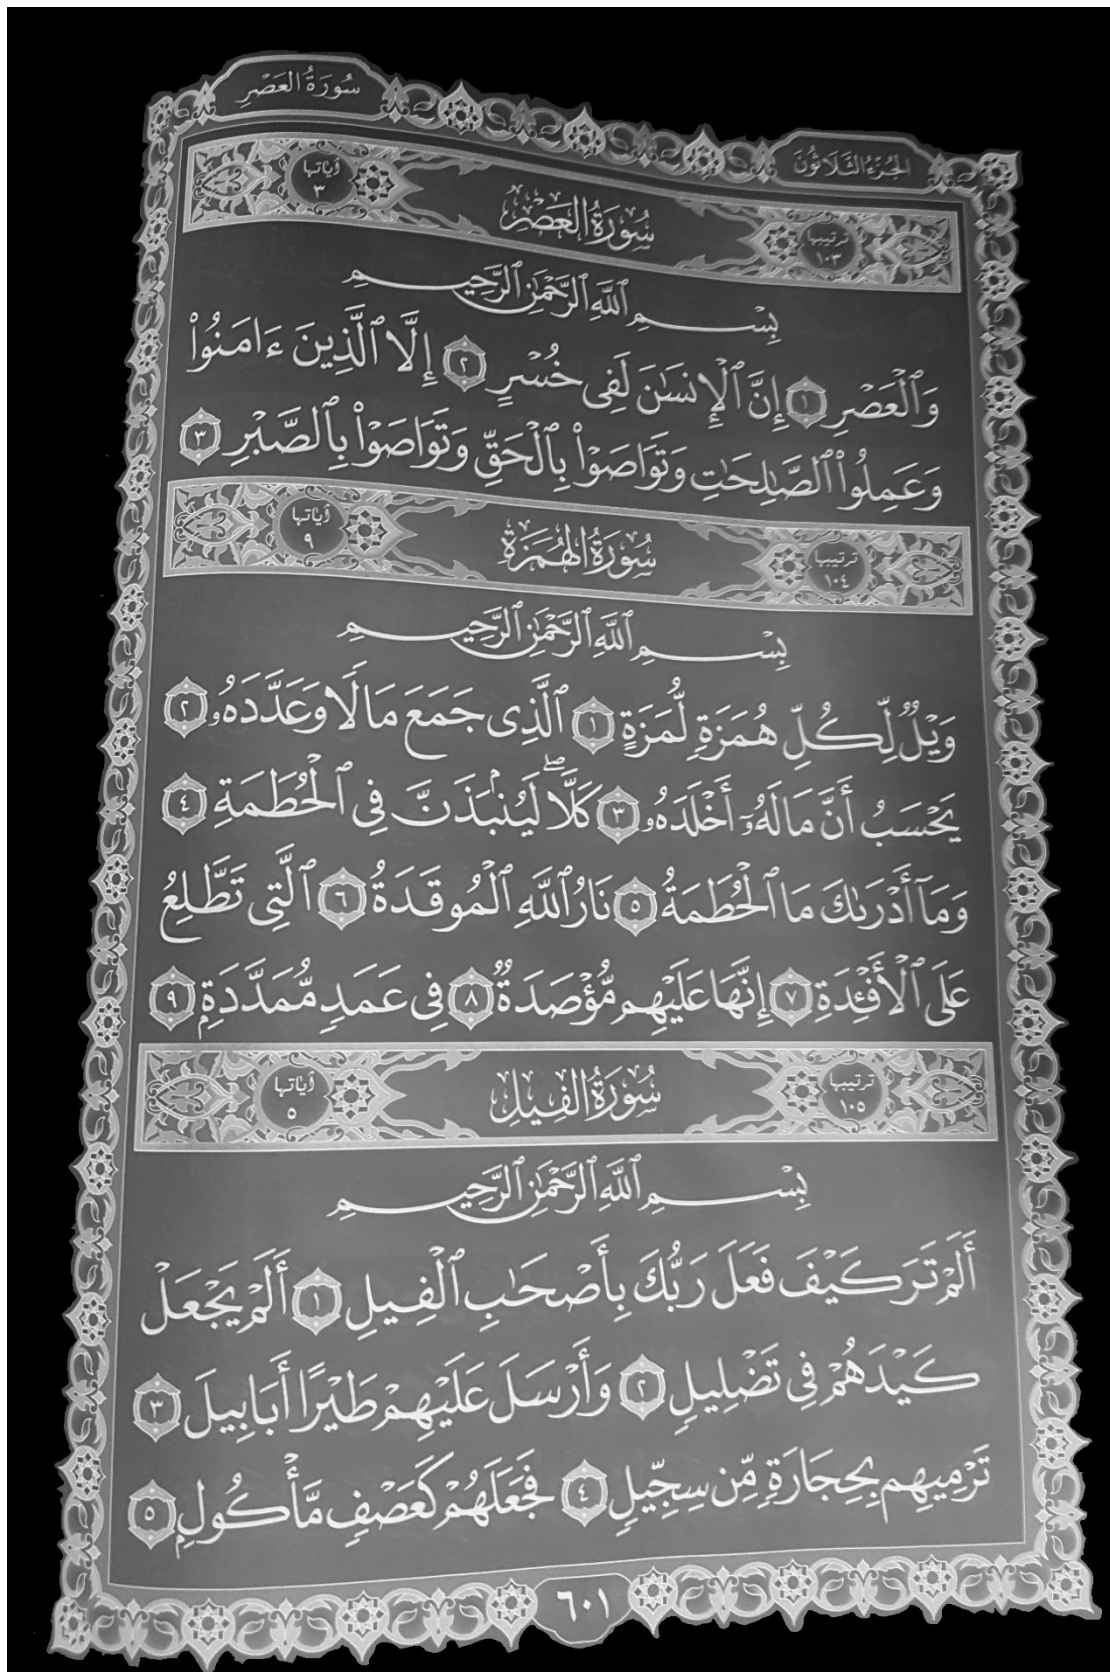 الجُزْءُ الثَّلَاثُونَ
سُورَةُ العَصْرِ
ترتيبها ١٠٣ سُورَةُ العَصْرِ آياتها ٣
بِسْمِ ٱللَّهِ ٱلرَّحْمَٰنِ ٱلرَّحِيمِ
وَٱلْعَصْرِ ١ إِنَّ ٱلْإِنسَٰنَ لَفِى خُسْرٍ ٢ إِلَّا ٱلَّذِينَ ءَامَنُوا۟
وَعَمِلُوا۟ ٱلصَّٰلِحَٰتِ وَتَوَاصَوْا۟ بِٱلْحَقِّ وَتَوَاصَوْا۟ بِٱلصَّبْرِ ٣
ترتيبها ١٠٤ سُورَةُ الهُمَزَةِ آياتها ٩
بِسْمِ ٱللَّهِ ٱلرَّحْمَٰنِ ٱلرَّحِيمِ
وَيْلٌ لِّكُلِّ هُمَزَةٍ لُّمَزَةٍ ١ ٱلَّذِى جَمَعَ مَالًا وَعَدَّدَهُۥ ٢
يَحْسَبُ أَنَّ مَالَهُۥٓ أَخْلَدَهُۥ ٣ كَلَّا ۖ لَيُنۢبَذَنَّ فِى ٱلْحُطَمَةِ ٤
وَمَآ أَدْرَىٰكَ مَا ٱلْحُطَمَةُ ٥ نَارُ ٱللَّهِ ٱلْمُوقَدَةُ ٦ ٱلَّتِى تَطَّلِعُ
عَلَى ٱلْأَفْـِٔدَةِ ٧ إِنَّهَا عَلَيْهِم مُّؤْصَدَةٌ ٨ فِى عَمَدٍ مُّمَدَّدَةٍۭ ٩
ترتيبها ١٠٥ سُورَةُ الفِيلِ آياتها ٥
بِسْمِ ٱللَّهِ ٱلرَّحْمَٰنِ ٱلرَّحِيمِ
أَلَمْ تَرَ كَيْفَ فَعَلَ رَبُّكَ بِأَصْحَٰبِ ٱلْفِيلِ ١ أَلَمْ يَجْعَلْ
كَيْدَهُمْ فِى تَضْلِيلٍ ٢ وَأَرْسَلَ عَلَيْهِمْ طَيْرًا أَبَابِيلَ ٣
تَرْمِيهِم بِحِجَارَةٍ مِّن سِجِّيلٍ ٤ فَجَعَلَهُمْ كَعَصْفٍ مَّأْكُولٍۭ ٥
٦٠١